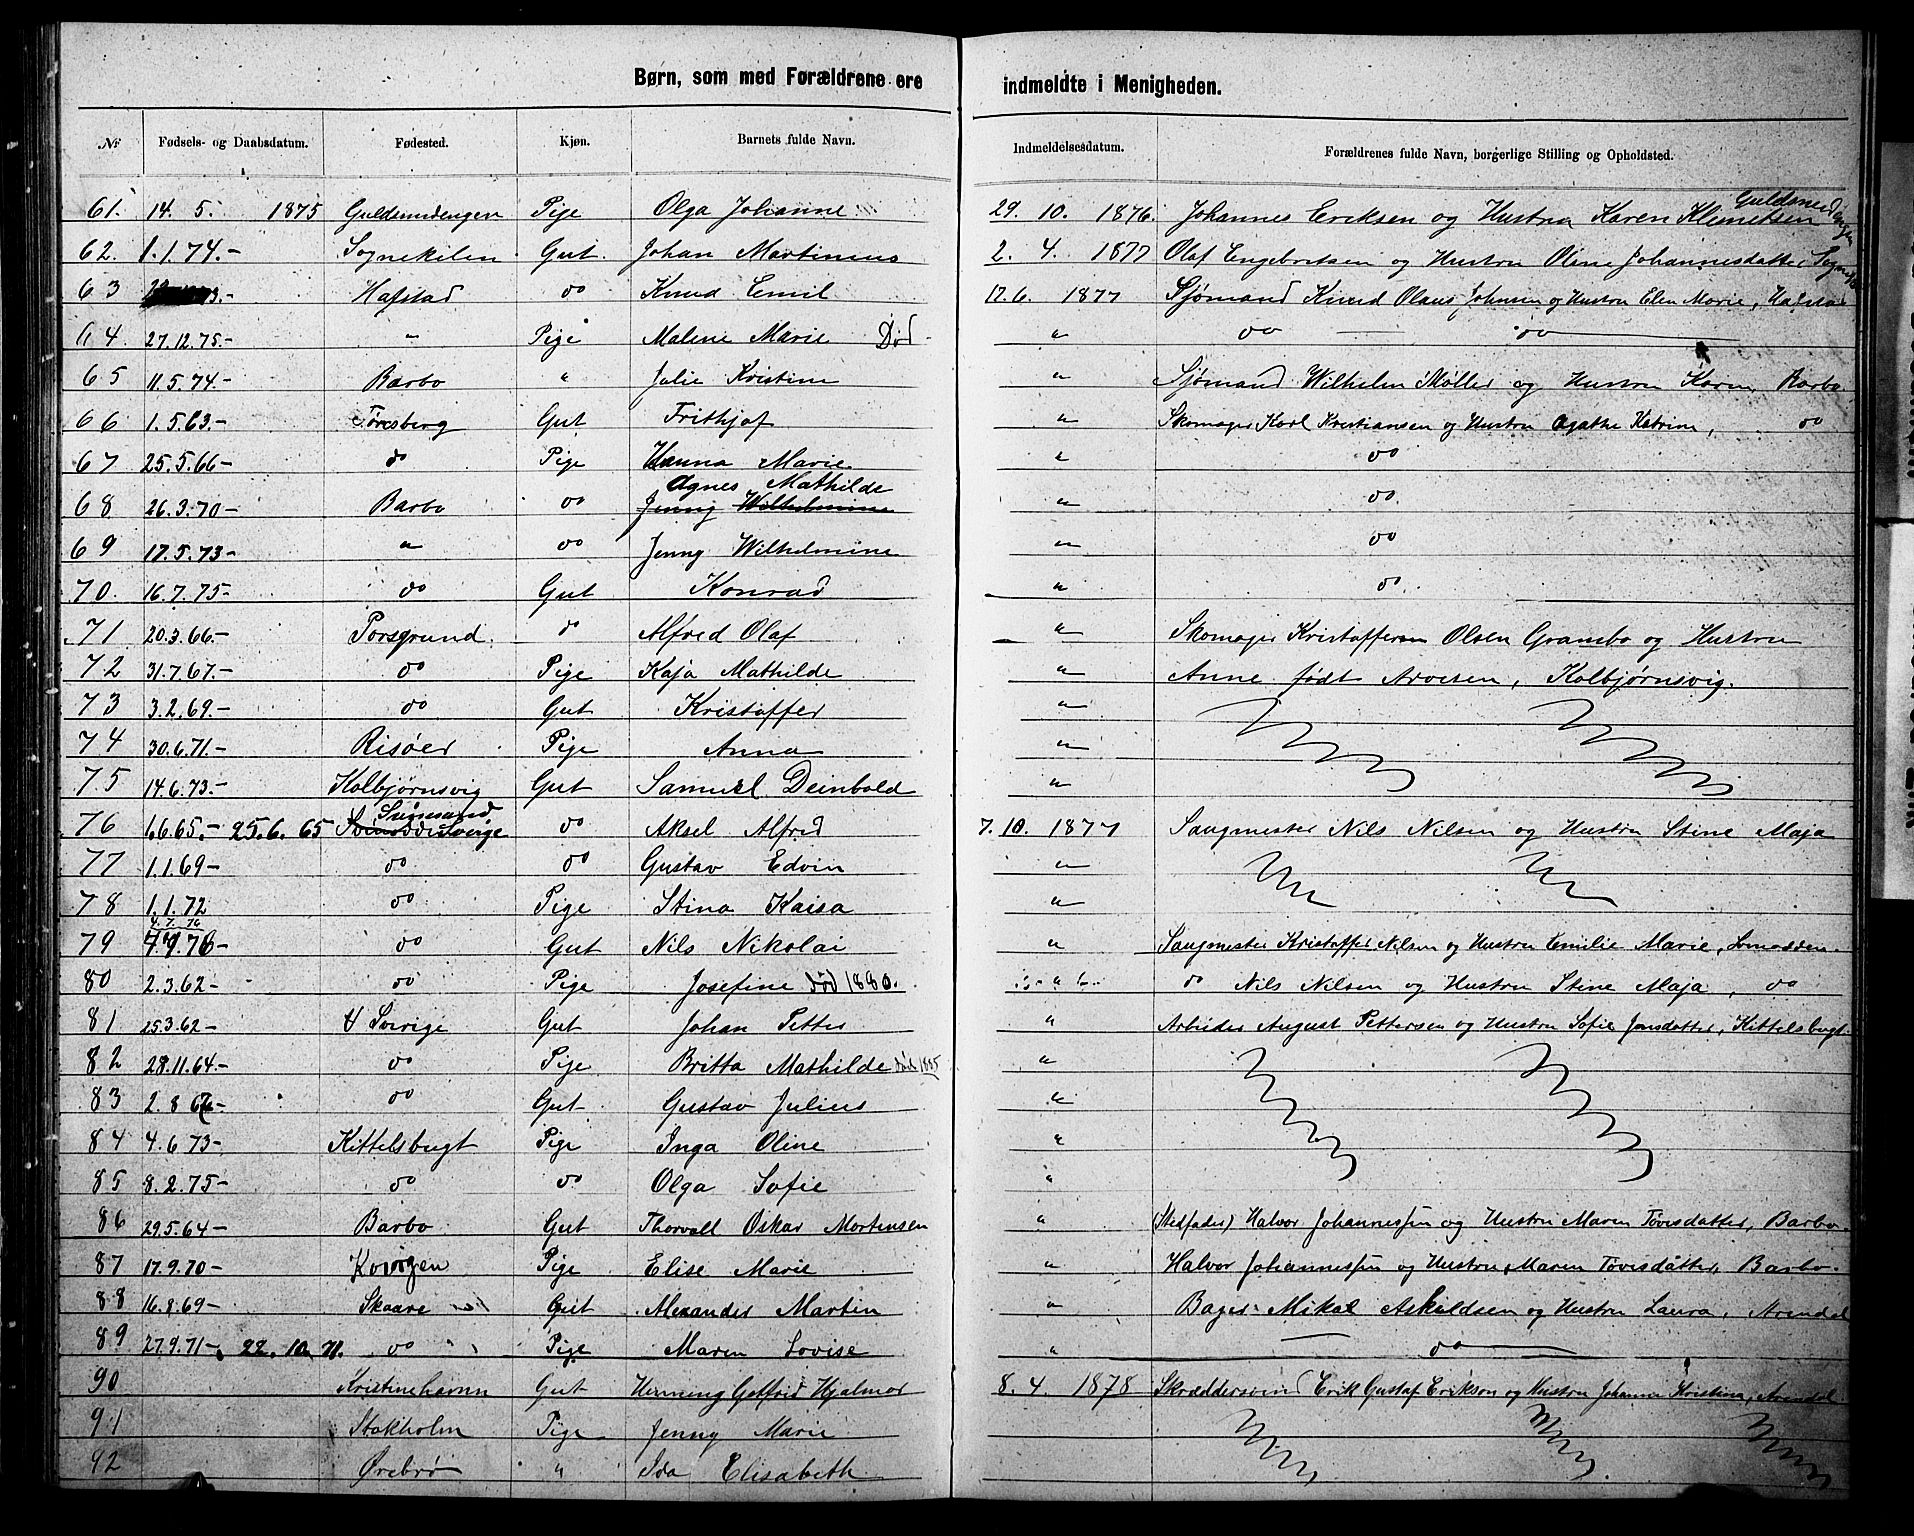 Børn, som med Forældrene ere indmeldte i Menigheden.
№ Fødsels- og Daabsdatum. Fødested. Kjøn. Barnets fulde Navn. Indmeldelsesdatum. Forældrenes fulde Navn, borgerlige Stilling og Opholdsted.
61. 14. 5. 1875 Guldsmedengen Pige Olga Johanne 29. 10. 1876. Johannes Eriksen og Hustru Karen Klemetsen Guldsmedengen
62. 1.1.74.- Sognekilen Gut Johan Martinius 2. 4. 1877 Olaf Engebretsen og Hustru Oline Johannesdatter,
63 Hafstad do Knud Emil 17.6. 1877 Sjømand Knud Olaus Johnsen og Hustru Elen Marie, Hafstad
64 27.12.75.- " Pige Malene Marie Død. " do do
65 11.5.74- Barbo " Julie Kristine " Sjømand Wilhelm Møller og Hustru Karen, Barbo
66 1.5.63.- Gut Frithjof " Skomager Karl Kristiansen og Hustru Agathe Katrine, do
67 25.5.66- do Pige Hanna Marie " do
68 26.3.70- Barbo do Agnes Mathilde Jenny Wilhelmine " do.
69 17.5.73- " do Jenny Wilhelmine " do
70. 16.7.75- do Gut Konrad " do.
71 20.3.66.- Porsgrund. do Alfred Olaf " Skomager Kristoffersen Olsen Grambo og Hustru
72 31.7.67.- do Pige Kaja Mathilde " Anne født Arvesen, Kolbjørnsvig.
73 3.2.69.- do Gut Kristoffer "
74 30.6.71.- Risøer Pige Anna "
75 14.6.73.- Kolbjørnsvig Gut Samuel Deinbold "
76 1.6.65.- 25.6.65 do Aksel Alfred 7.10. 1877 Saugmester Nils Nilsen og Hustru Stine Maja
77 1.1.69- do do Gustav Edvin "
78 1.1.72 do Pige Stina Kaisa "
79 4.7.76 7.9.76- do Gut Nils Nikolai " Saugmester Kristoffer Nilsen og Hustru Emilie Marie, Lomodden.
80 2.3.62- do Pige Josefine død 1880. " do Nils Nilsen og Hustru Stine Maja, do
81 25.3.62- Sverige Gut Johan Petter " Arbeider August Pettersen og Hustru Sofie Jonsdatter, Kittelsbugt.
82 28.11.64.- do Pige Britta Mathilde død "
83 do Gut. Gustav Julius "
84 4.6.73- Kittelsbugt Pige Inga Oline "
85 8.2.75- do do Olga Sofie "
86 29.5.64- Barbo Gut Thorvall Oskar Mortensen " (Stedfader) Halvor Johannessen og Hustru Maren Tovisdatter, Barbo.
87 17.9.70- Pige Elise Marie " Halvor Johannessen og Hustru Maren Tovisdatter, Barbo.
88 16.8.69- Skaare Gut Alexander Martin " Bager Mikal Askildsen og Hustru Laura, Arendal
89 27.9.71-, 22. 10. 71. do Pige Maren Lovise " do
90 Kristinehamn Gut Henning Gotfrid Hjalmar 8.4. 1878 Skræddersvend Erik Gustaf Erikson og Hustru Johanna Kristina, Arendal
91 Stokholm Pige Jenny Marie
92 Ørebro " Ida Elisabeth